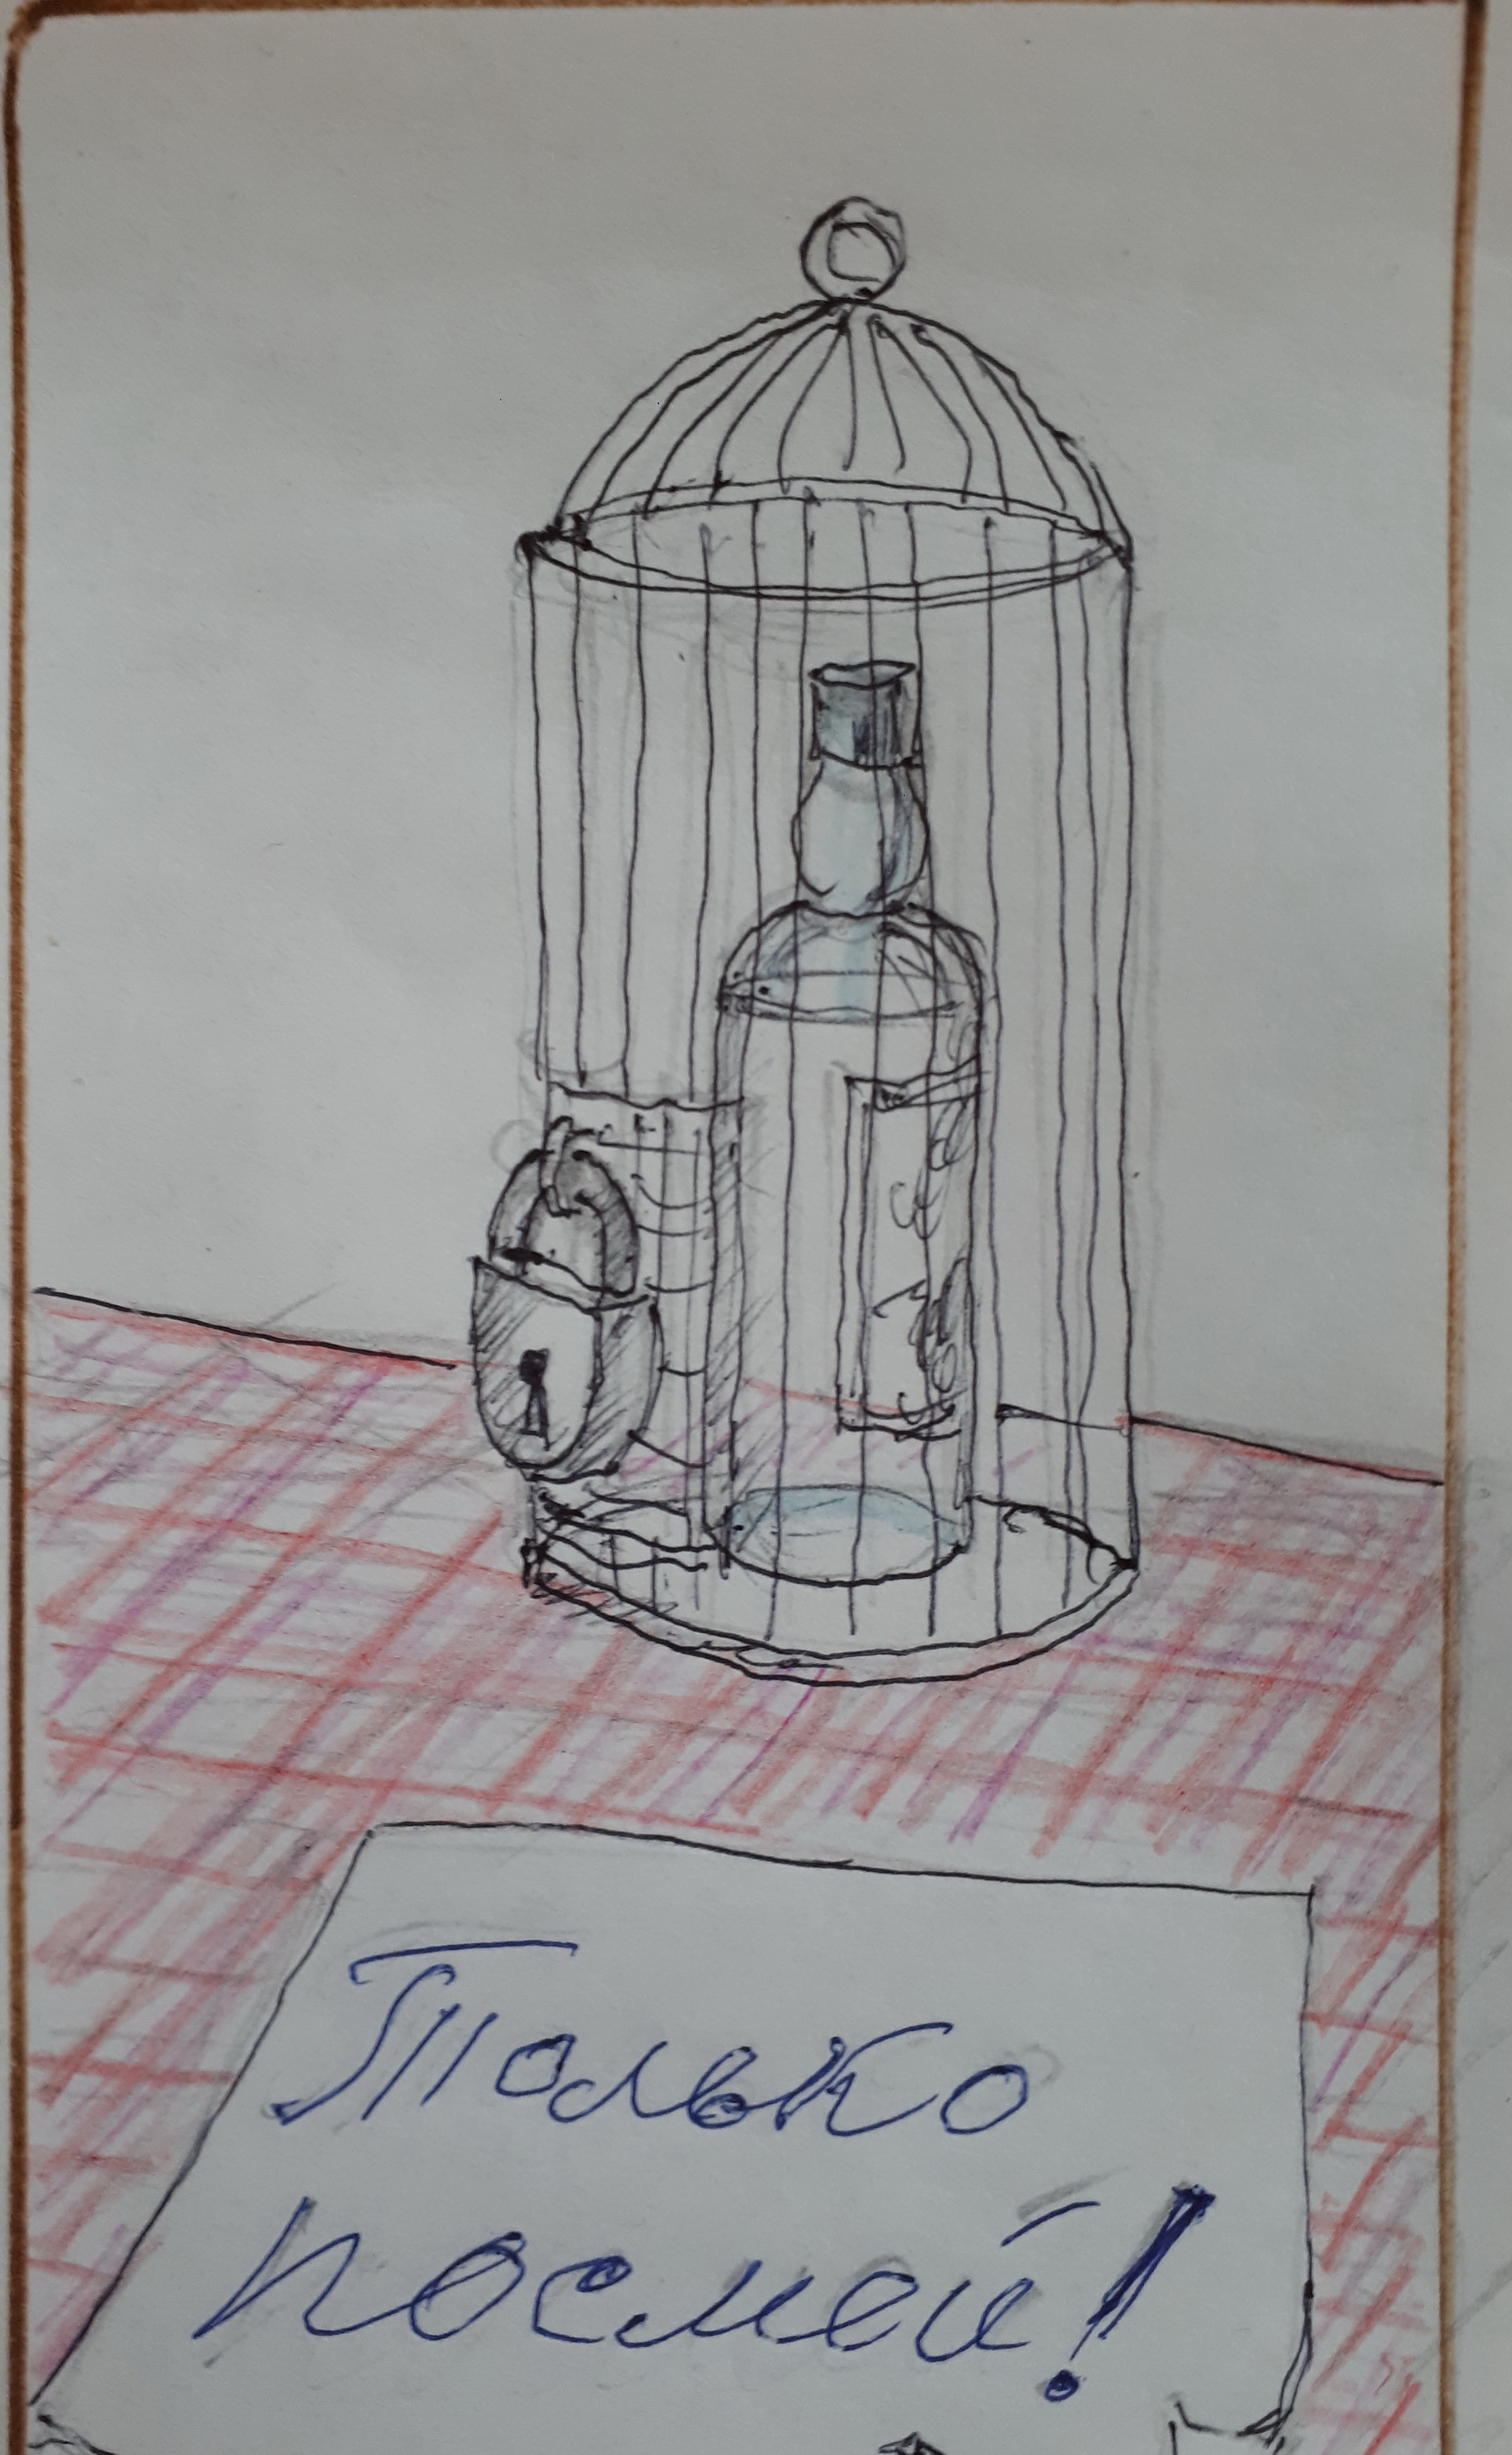 Только
посмей!